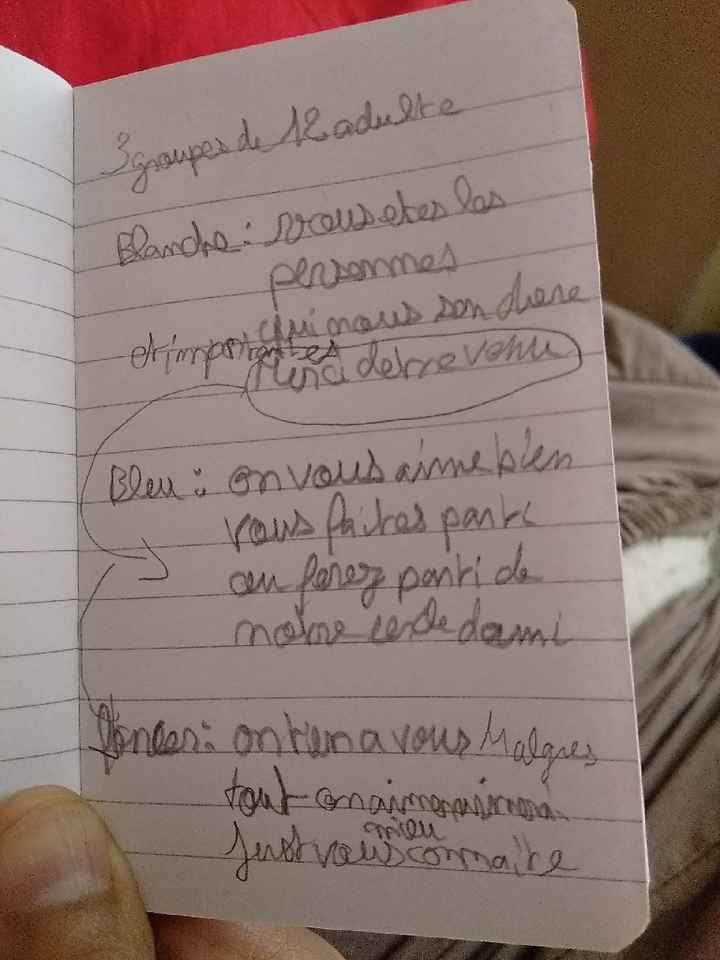 3 groupes de 12 adulte
Blanche : vous etes les
personnes
qui nous son chere
et importantes
Merci detre venu
Bleu : on vous aime bien
vous faites parti
ou ferez parti de
notre cercle dami
on tien a vous Malgres
tout on
mieu
just vous connaitre